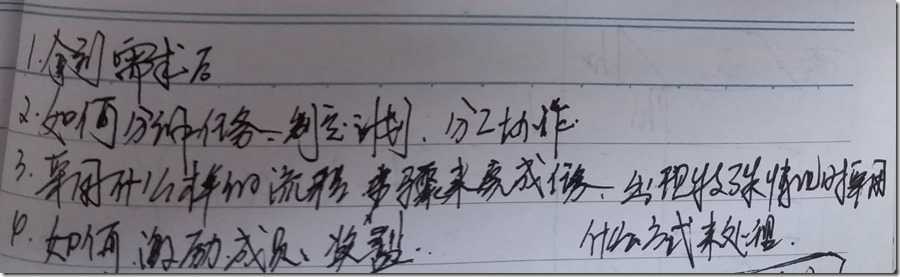 1. 拿到需求后
2. 如何分解任务、制定计划、分工协作.
3. 采用什么样的流程 步骤来完成任务、出现特殊情况时采用
什么方式来处理.
4. 如何激励成员、奖